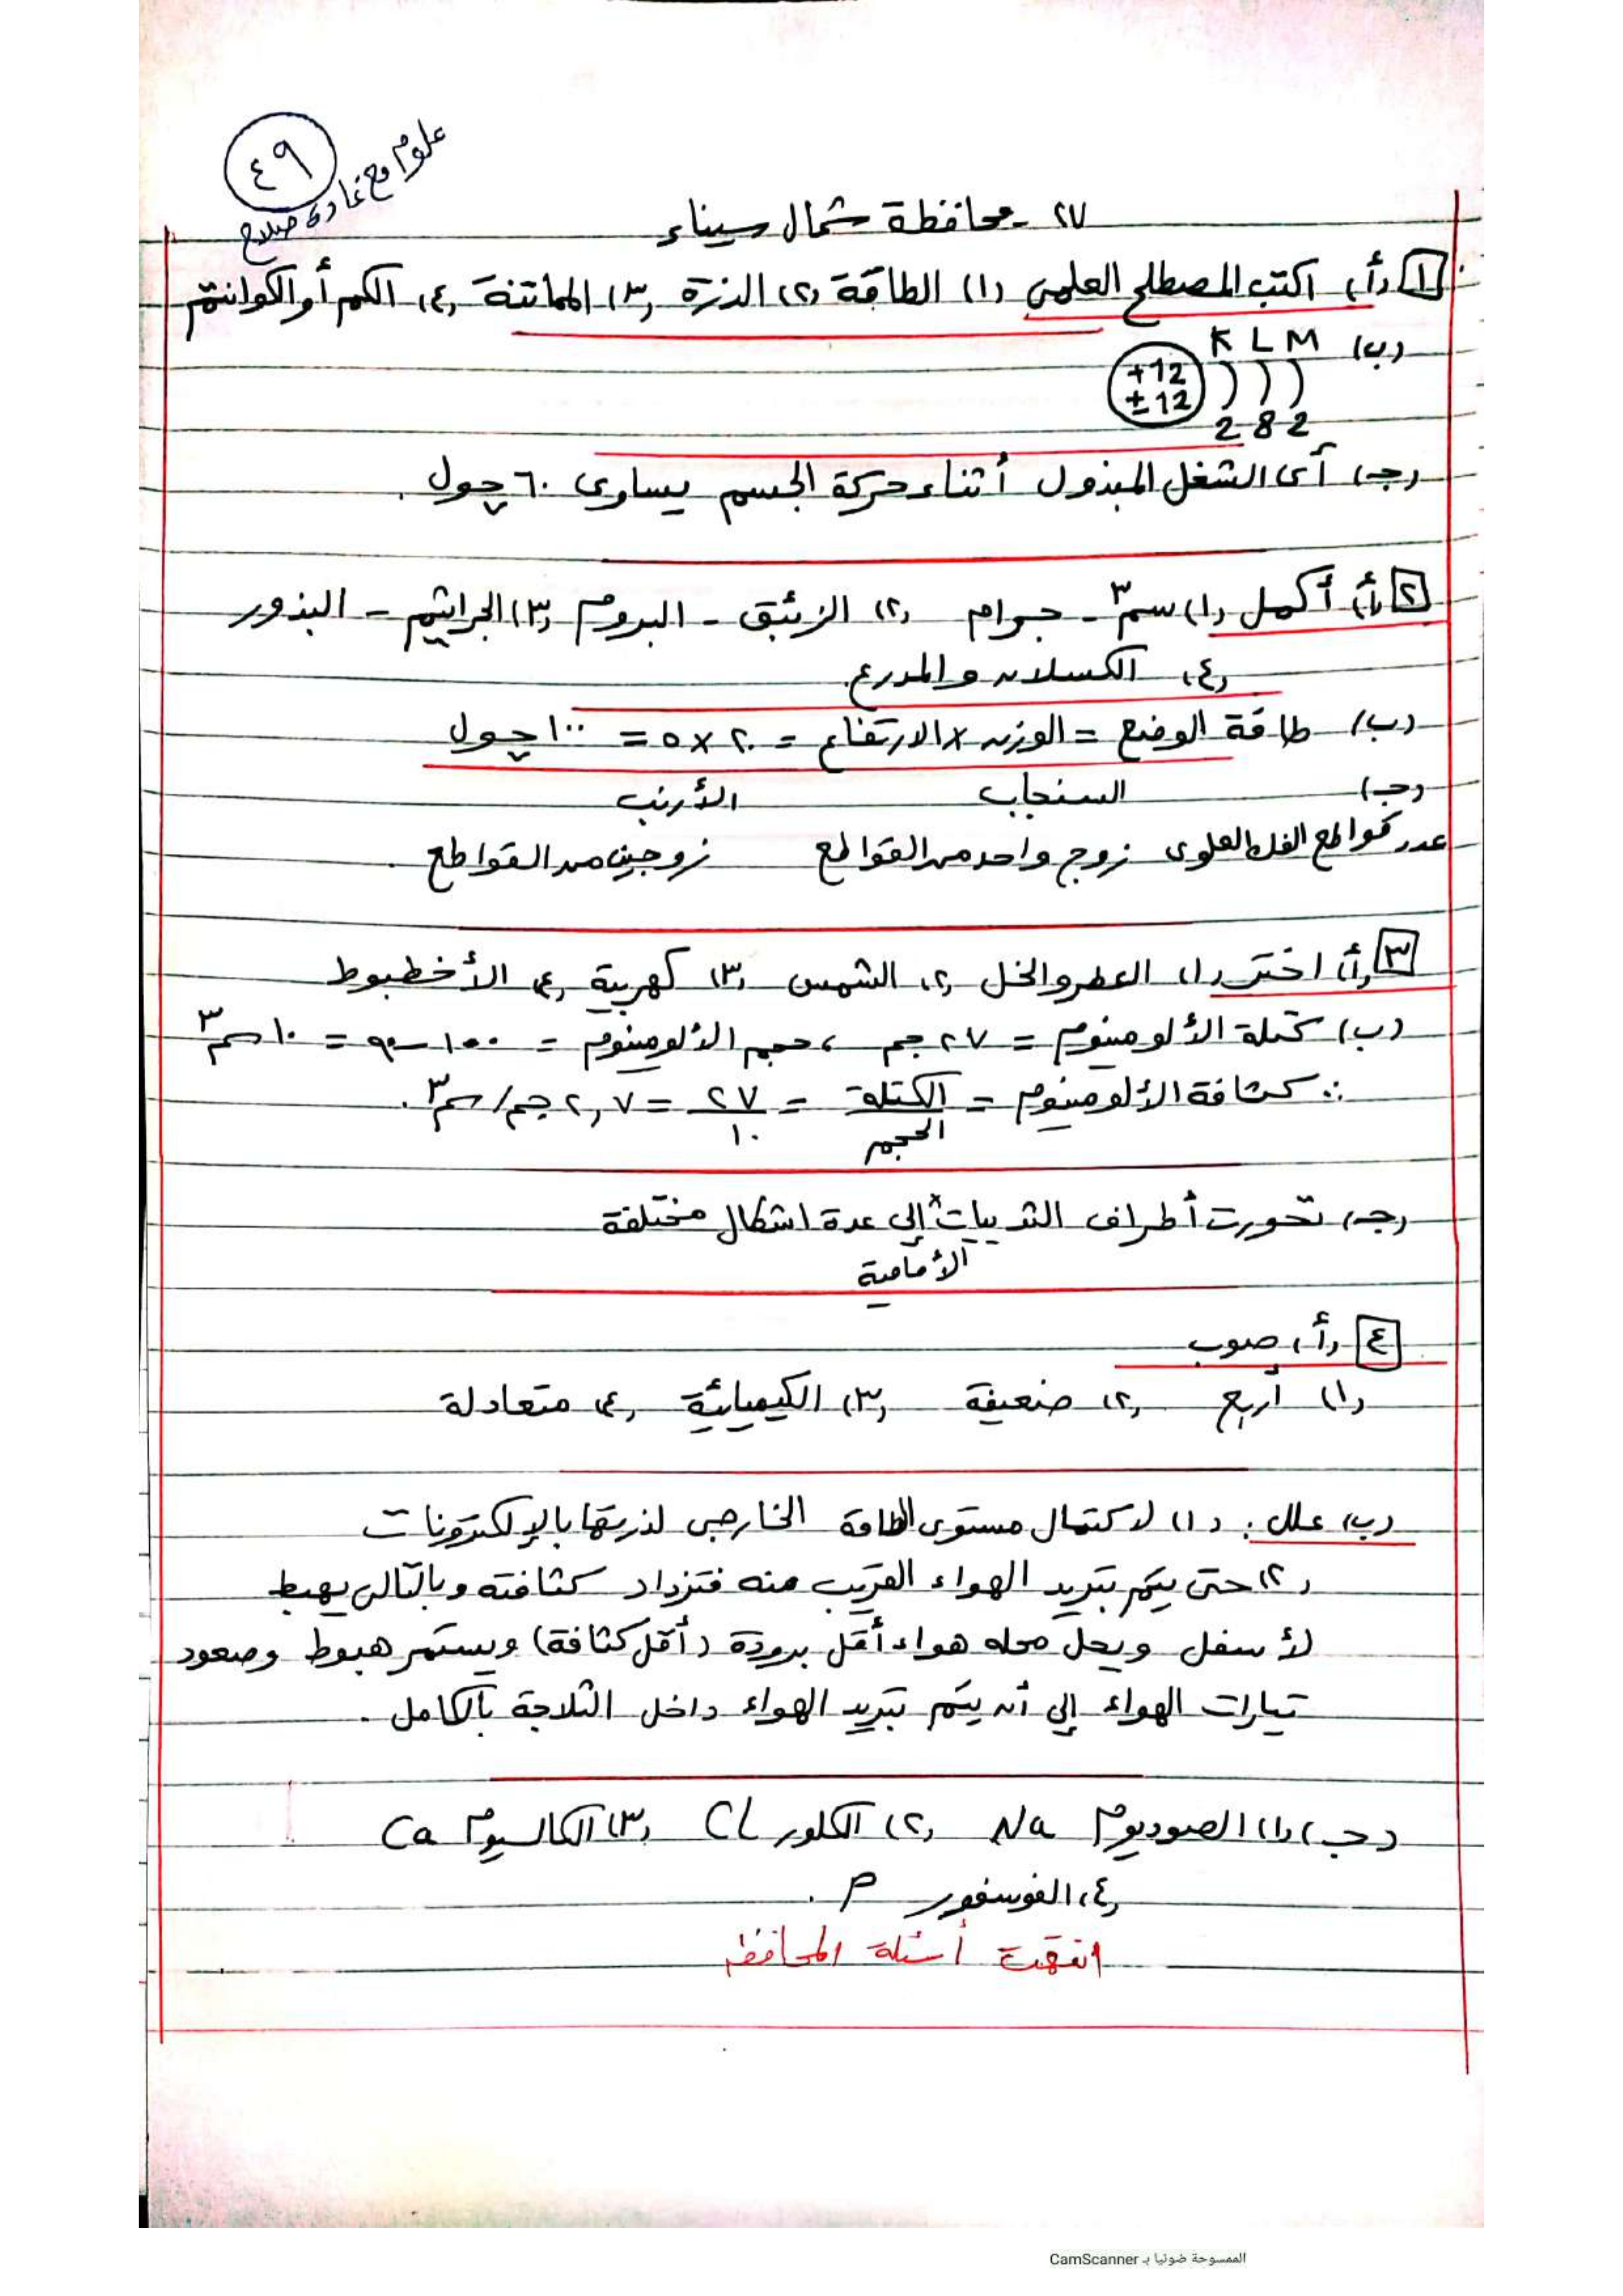 ٤٩
علوم مع غادة صلاح
٢٧ - محافظة شمال سيناء
١ (أ) اكتب المصطلح العلمى (١) الطاقة (٢) الذرة (٣) المماتنة (٤) الكم أو الكوانتم
(ب) K L M
+12
±12
2 8 2
(جـ) أى الشغل المبذول أثناء حركة الجسم يساوى ٦٠ چول .
٢ (أ) أكمل (١) سم٣ - جرام (٢) الزئبق - البروم (٣) الجراثيم - البذور
(٤) الكسلان والمدرع.
(ب) طاقة الوضع = الوزن × الارتفاع = ٢٠ × ٥ = ١٠٠ چول
(جـ) السنجاب الأرنب
عدد قواطع الفك العلوى زوج واحد من القواطع زوجين من القواطع .
٣ (أ) اختر (١) العطر والخل (٢) الشمس (٣) كهربية (٤) الأخطبوط
(ب) كتلة الألومنيوم = ٢٧ جم ، حجم الألومنيوم = ١٠٠ - ٩٠ = ١٠ سم٣
∴ كثافة الألومنيوم = الكتلة / الحجم = ٢٧ / ١٠ = ٢,٧ جم/سم٣ .
(جـ) تحورت أطراف الثدييات × إلى عدة اشكال مختلفة
الأمامية
٤ (أ) صوب
(١) أربع (٢) ضعيفة (٣) الكيميائية (٤) متعادلة
(ب) علل : (١) لاكتمال مستوى الطاقة الخارجى لذريتها بالإلكترونات
(٢) حتى يتم تبريد الهواء القريب منه فتزداد كثافته وبالتالى يهبط
لأسفل ويحل محله هواء أقل برودة (أقل كثافة) ويستمر هبوط وصعود
تيارات الهواء إلى أن يتم تبريد الهواء داخل الثلاجة بالكامل .
(جـ) (١) الصوديوم Na (٢) الكلور Cl (٣) الكالسيوم Ca
(٤) الفوسفور P .
انتهت أسئلة المحافظة
الممسوحة ضوئيا بـ CamScanner